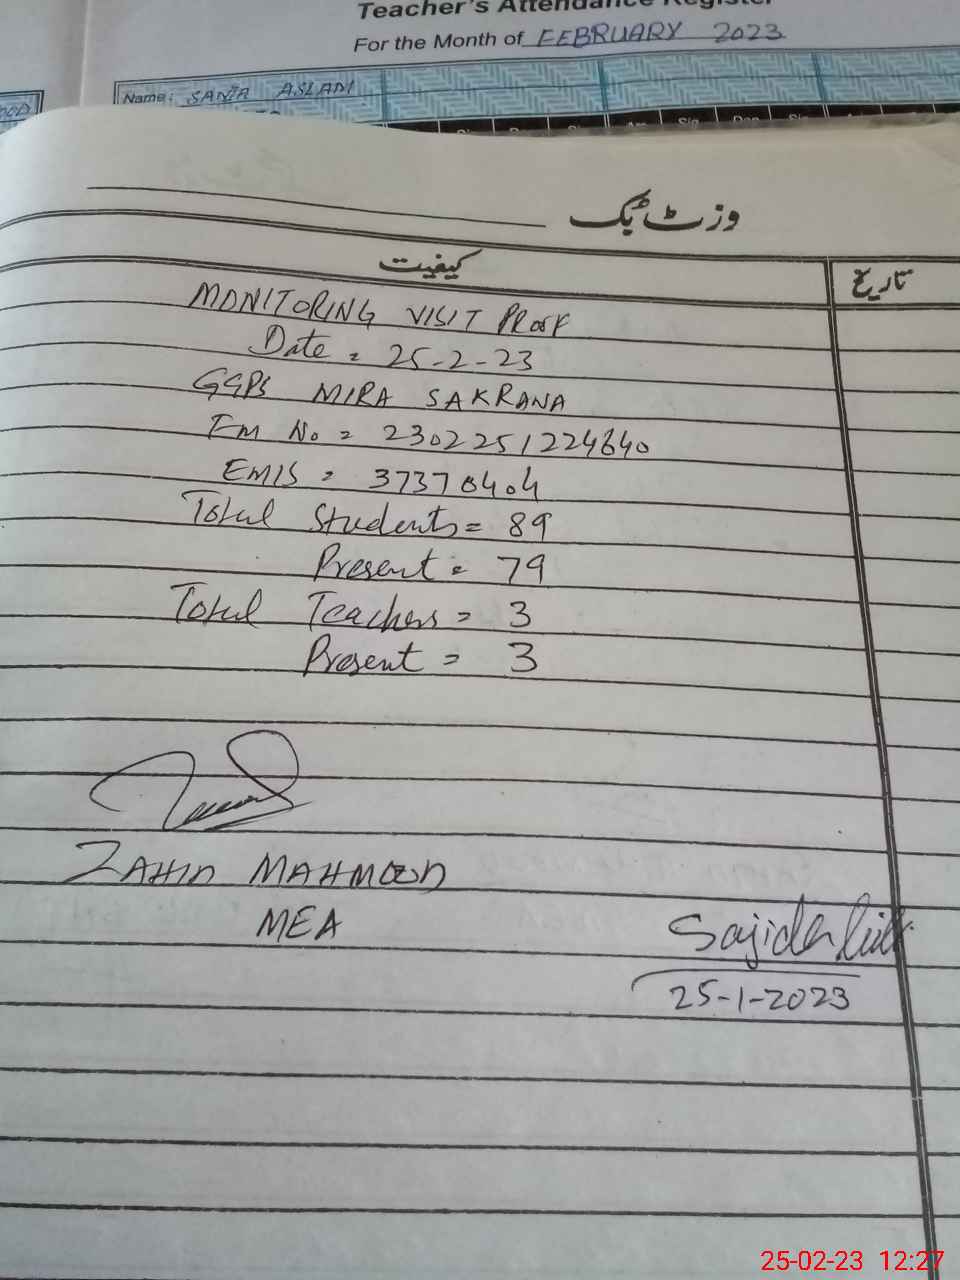 Teacher's Attendance Register
For the Month of FEBRUARY 2023
Name: SANIA ASLAM
وزٹ بک
کیفیت
تاریخ
MONITORING VISIT PROOF
Date = 25-2-23
GGPS MIRA SAKRANA
Em No = 2302251224640
EMIS = 37370404
Total Students = 89
Present = 79
Total Teachers = 3
Present = 3
ZAHID MAHMOOD
MEA
Sajida
25-1-2023
25-02-23 12:27